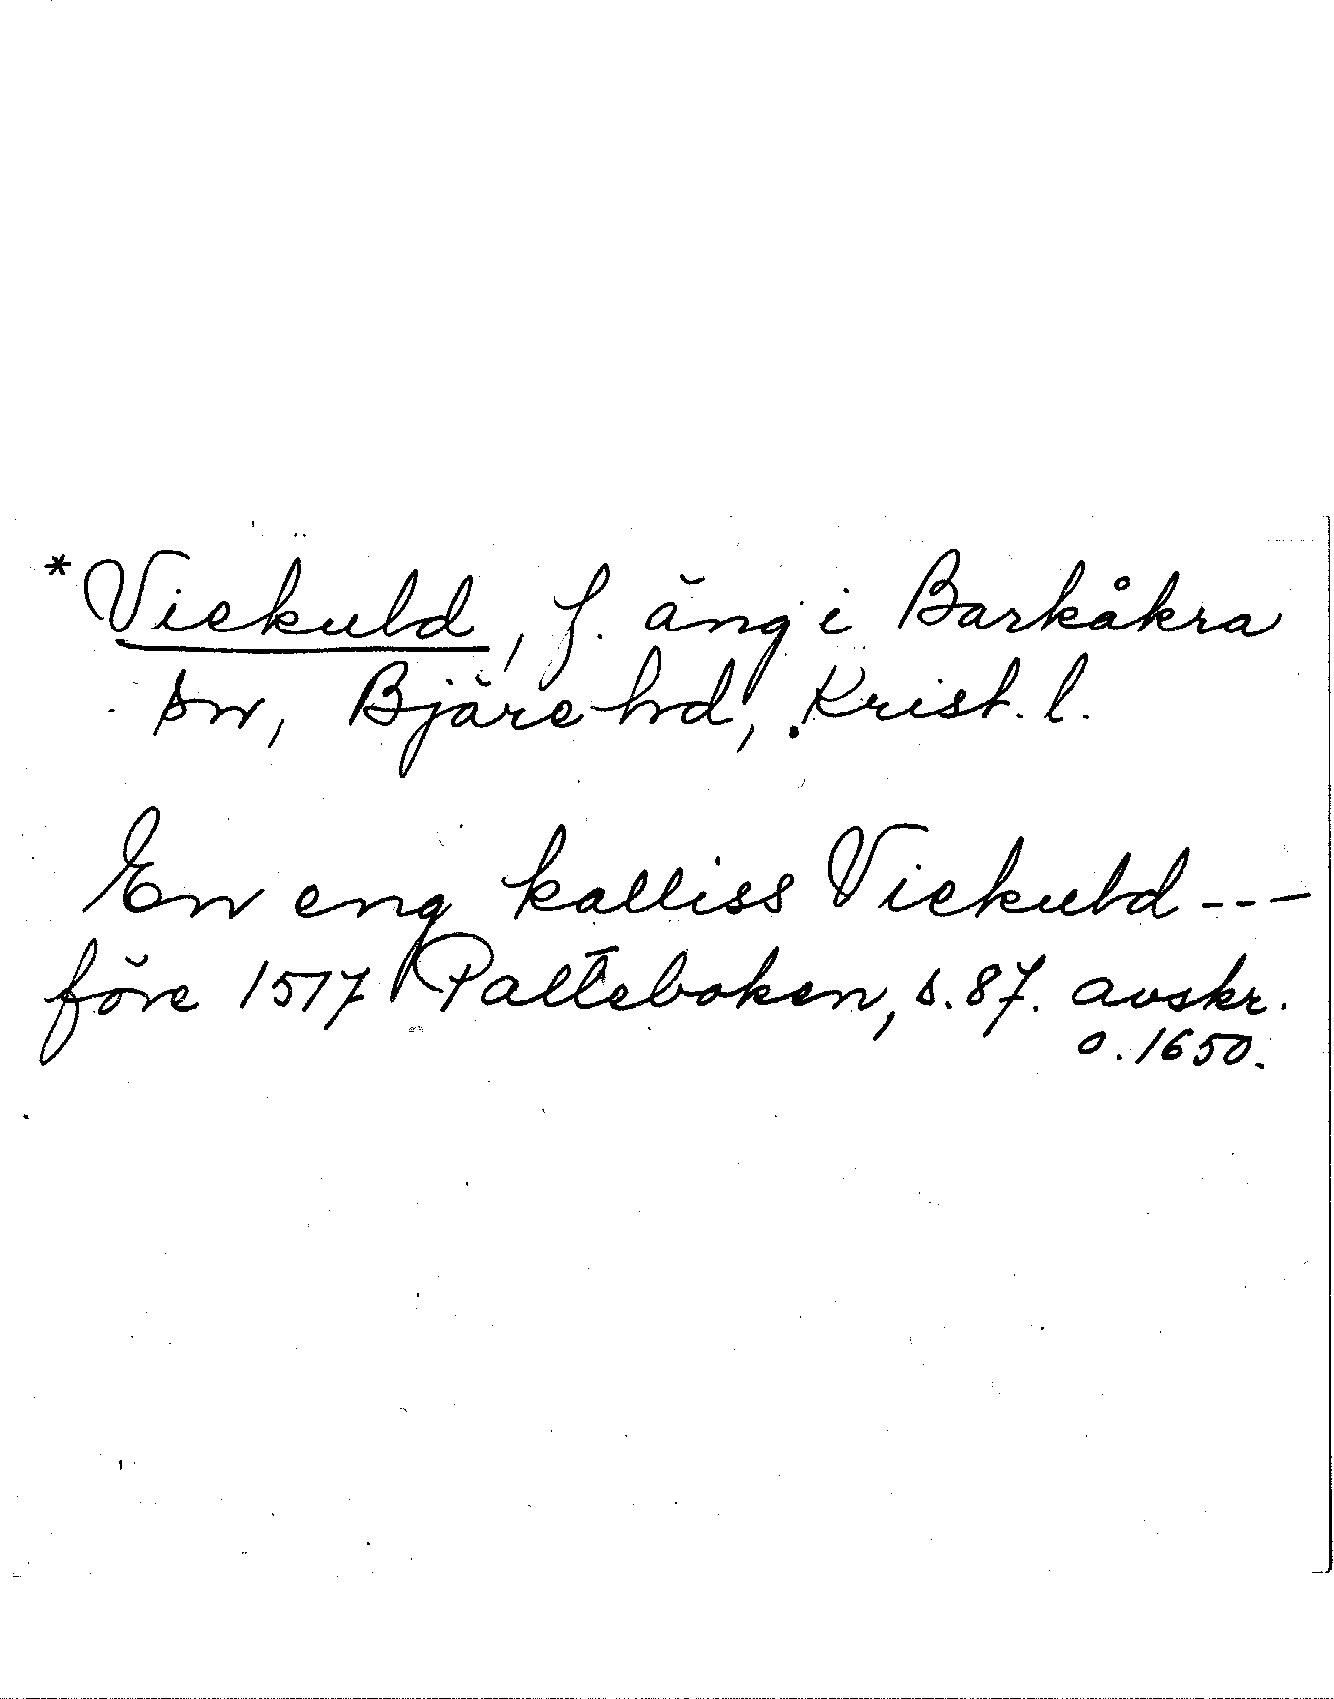 *Viekuld, f. äng i Barkåkra
sn, Bjäre hd, Krist. l.
En eng kalliss Viekuld ---
före 1517 Palteboken, s. 87. avskr.
o. 1650.